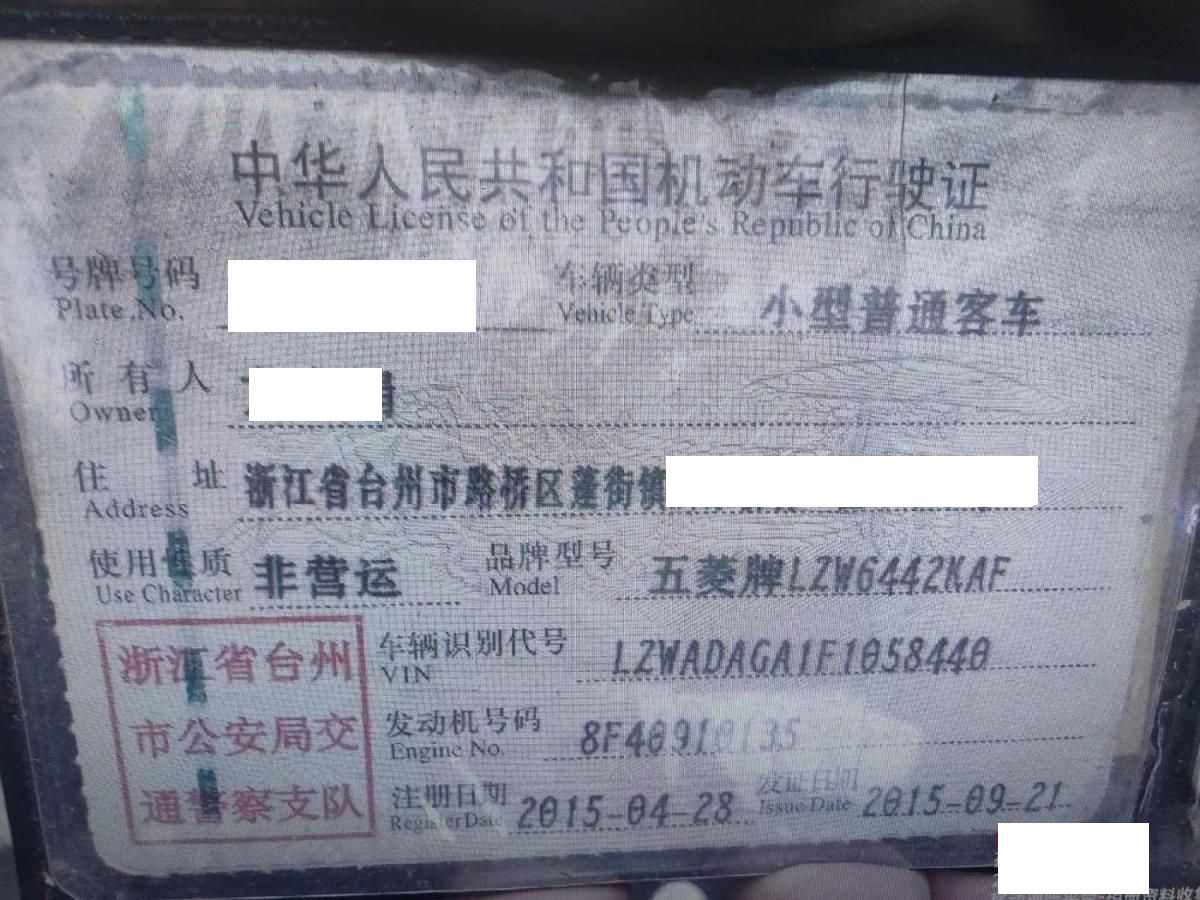 中华人民共和国机动车行驶证
Vehicle License of the People's Republic of China
号牌号码
Plate No.
车辆类型 小型普通客车
Vehicle Type
所有人
Owner
住址 浙江省台州市路桥区蓬街镇
Address
使用性质 非营运 品牌型号 五菱牌LZW6442KAF
Use Character Model
浙江省台州
市公安局交
通警察支队
车辆识别代号 LZWADAGA1F1058440
VIN
发动机号码 8F40910135
Engine No.
注册日期 2015-04-28 发证日期 2015-09-21
Register Date Issue Date